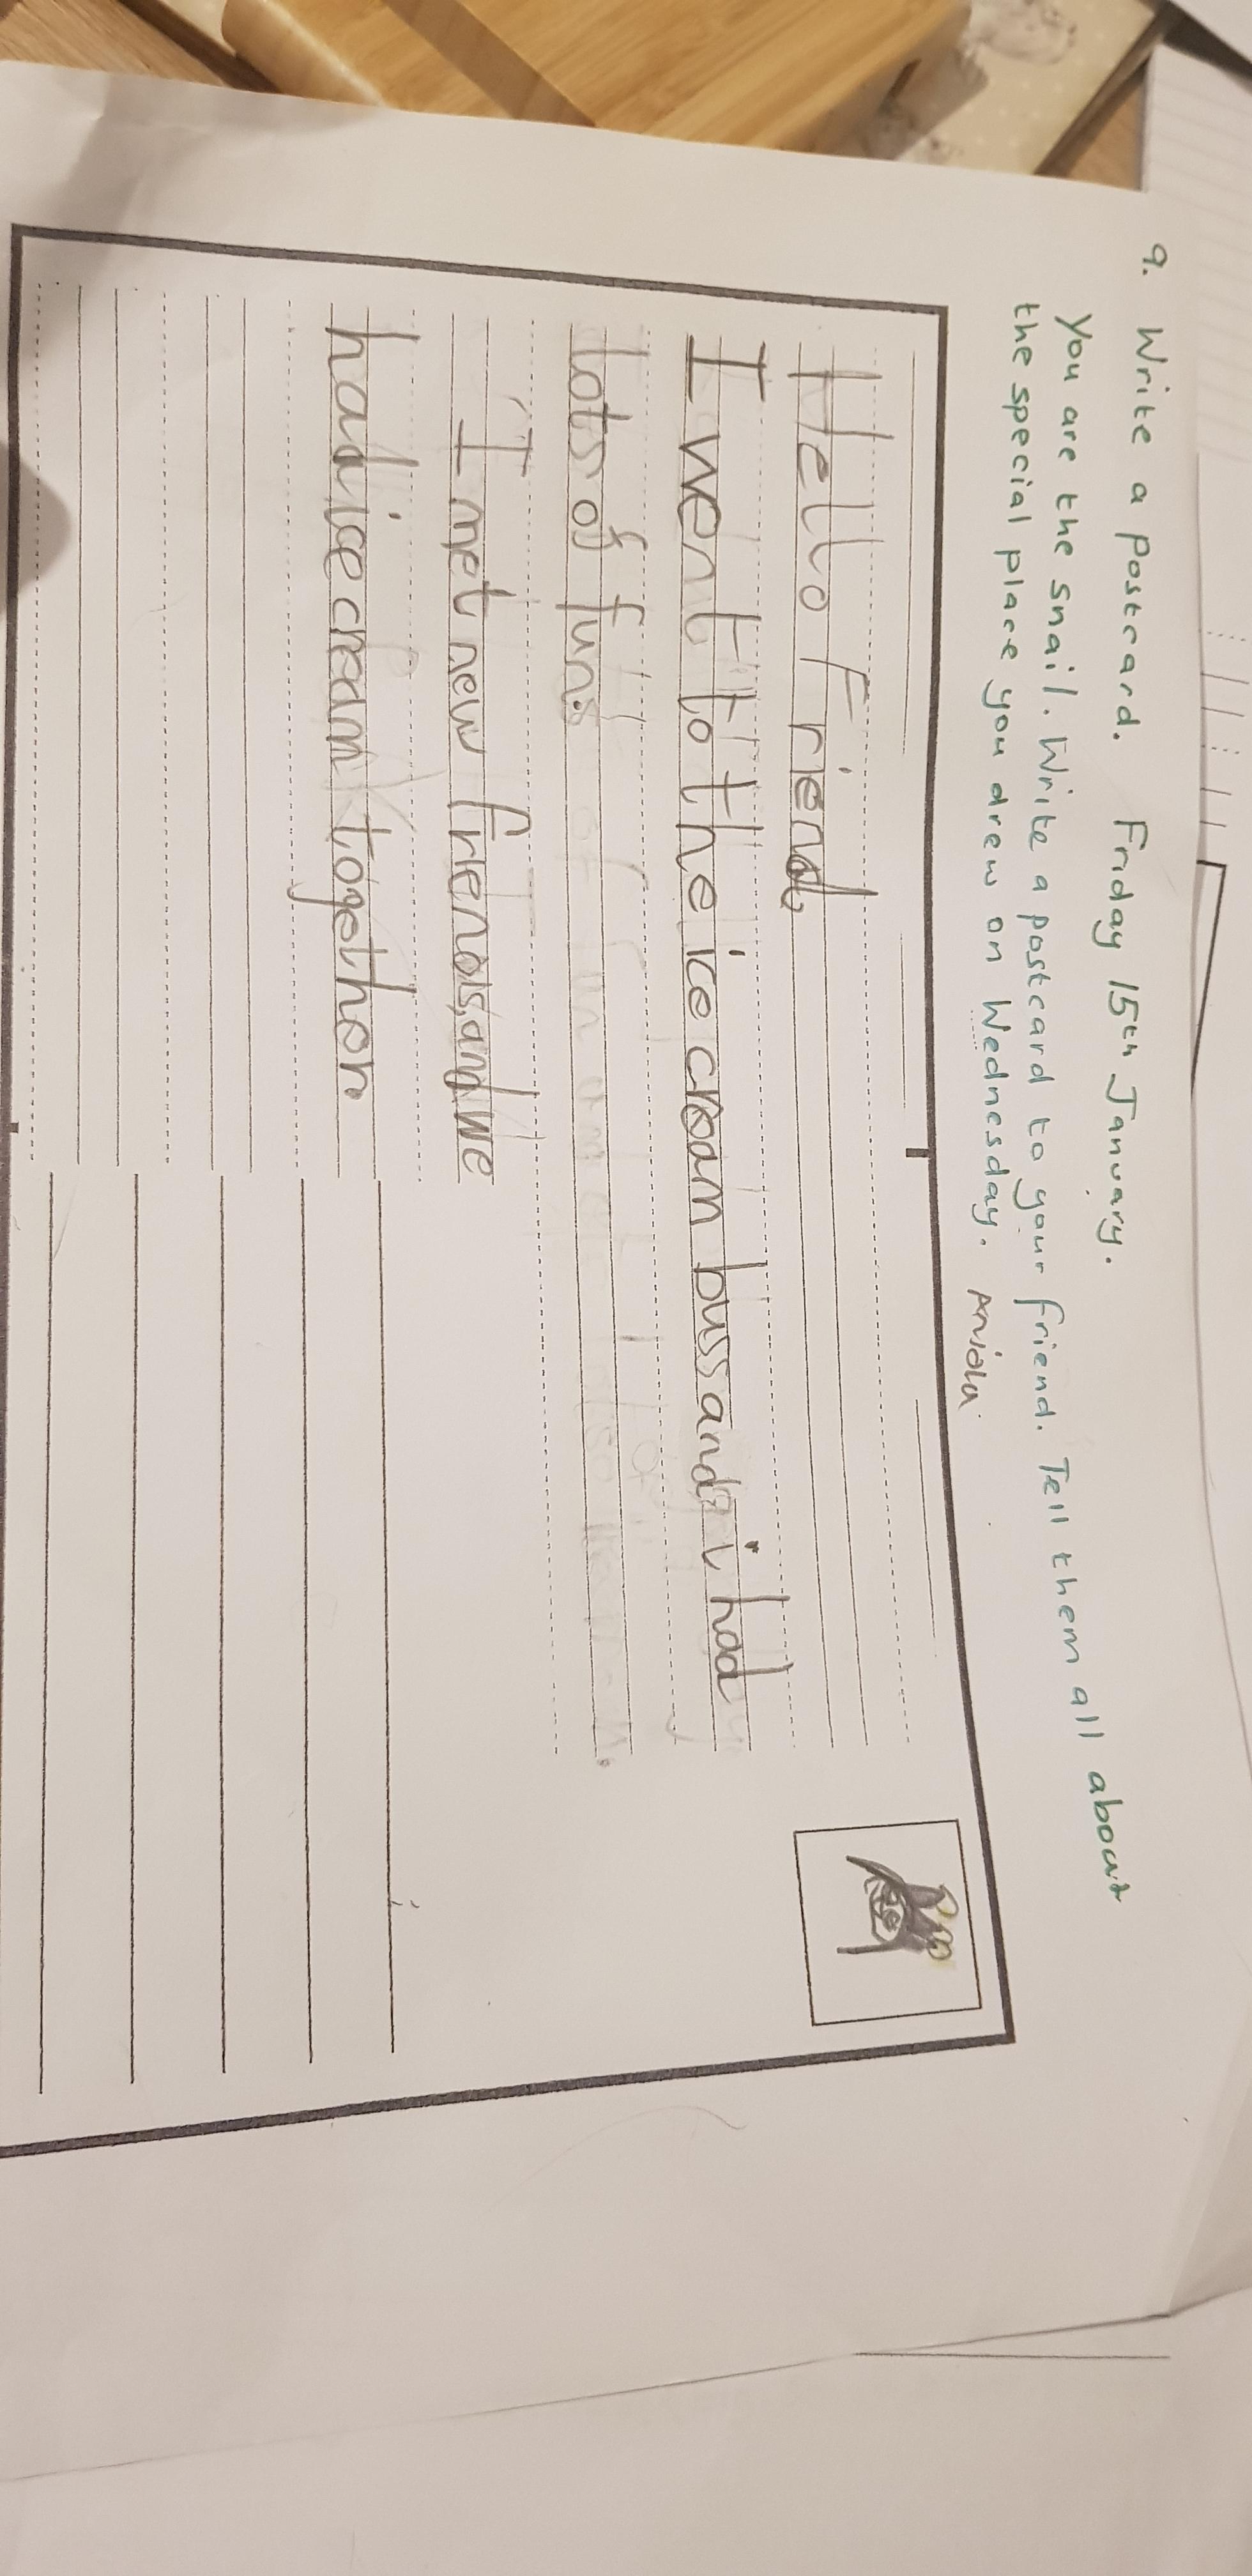 9. Write a postcard. Friday 15th January.
You are the snail. Write a postcard to your friend. Tell them all about
the special place you drew on Wednesday.
Hello Friend,
I went to the ice cream buss and i had
lots of fun.
I met new friends, and we
had ice cream together